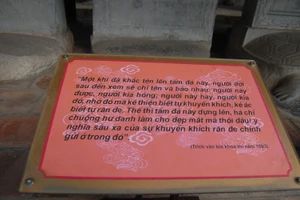 "Một khi đã khắc tên lên tấm đá này, người đời
sau đến xem sẽ chỉ tên và bảo nhau: người này
được, người kia hỏng, người này hay, người kia
dở, nhờ đó mà kẻ thiện biết tự khuyến khích, kẻ ác
biết tự răn đe. Thế thì tấm đá này dựng lên, há chỉ
chuộng hư danh làm cho đẹp mắt mà thôi đâu! ý
nghĩa sâu xa của sự khuyến khích răn đe chính
gửi ở trong đó".
(Trích văn bia khoa thi năm